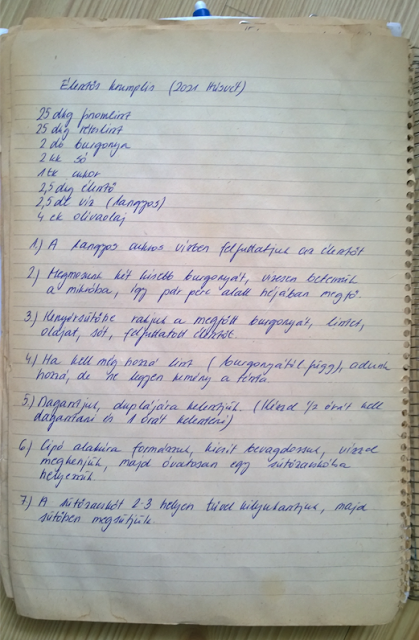 Élesztős krumplis (2021 Húsvét)
25 dkg finomliszt
25 dkg rétesliszt
2 db burgonya
2 kk só
1 tk cukor
2,5 dkg élesztő
2,5 dl víz (langyos)
4 ek olívaolaj
1) A langyos cukros vízben felfuttatjuk az élesztőt
2) Megmosunk két kisebb burgonyát, vizesen betesszük
a mikróba, így pár perc alatt héjában megfő.
3) Kenyérsütőbe rakjuk a megfőtt burgonyát, lisztet,
olajat, sót, felfuttatott élesztőt.
4) Ha kell még hozzá liszt (burgonyától függ), adunk
hozzá, de ne legyen kemény a tészta.
5) Dagasztjuk, duplájára kelesztjük. (Kézzel 1/2 órát kell
dagasztani és 1 órát keleszteni)
6) Cipó alakúra formázzuk, kicsit bevagdossuk, vízzel
megkenjük, majd óvatosan egy sütőzacskóba
helyezzük.
7) A sütőzacskót 2-3 helyen tűvel kilyukasztjuk, majd
sütőben megsütjük.